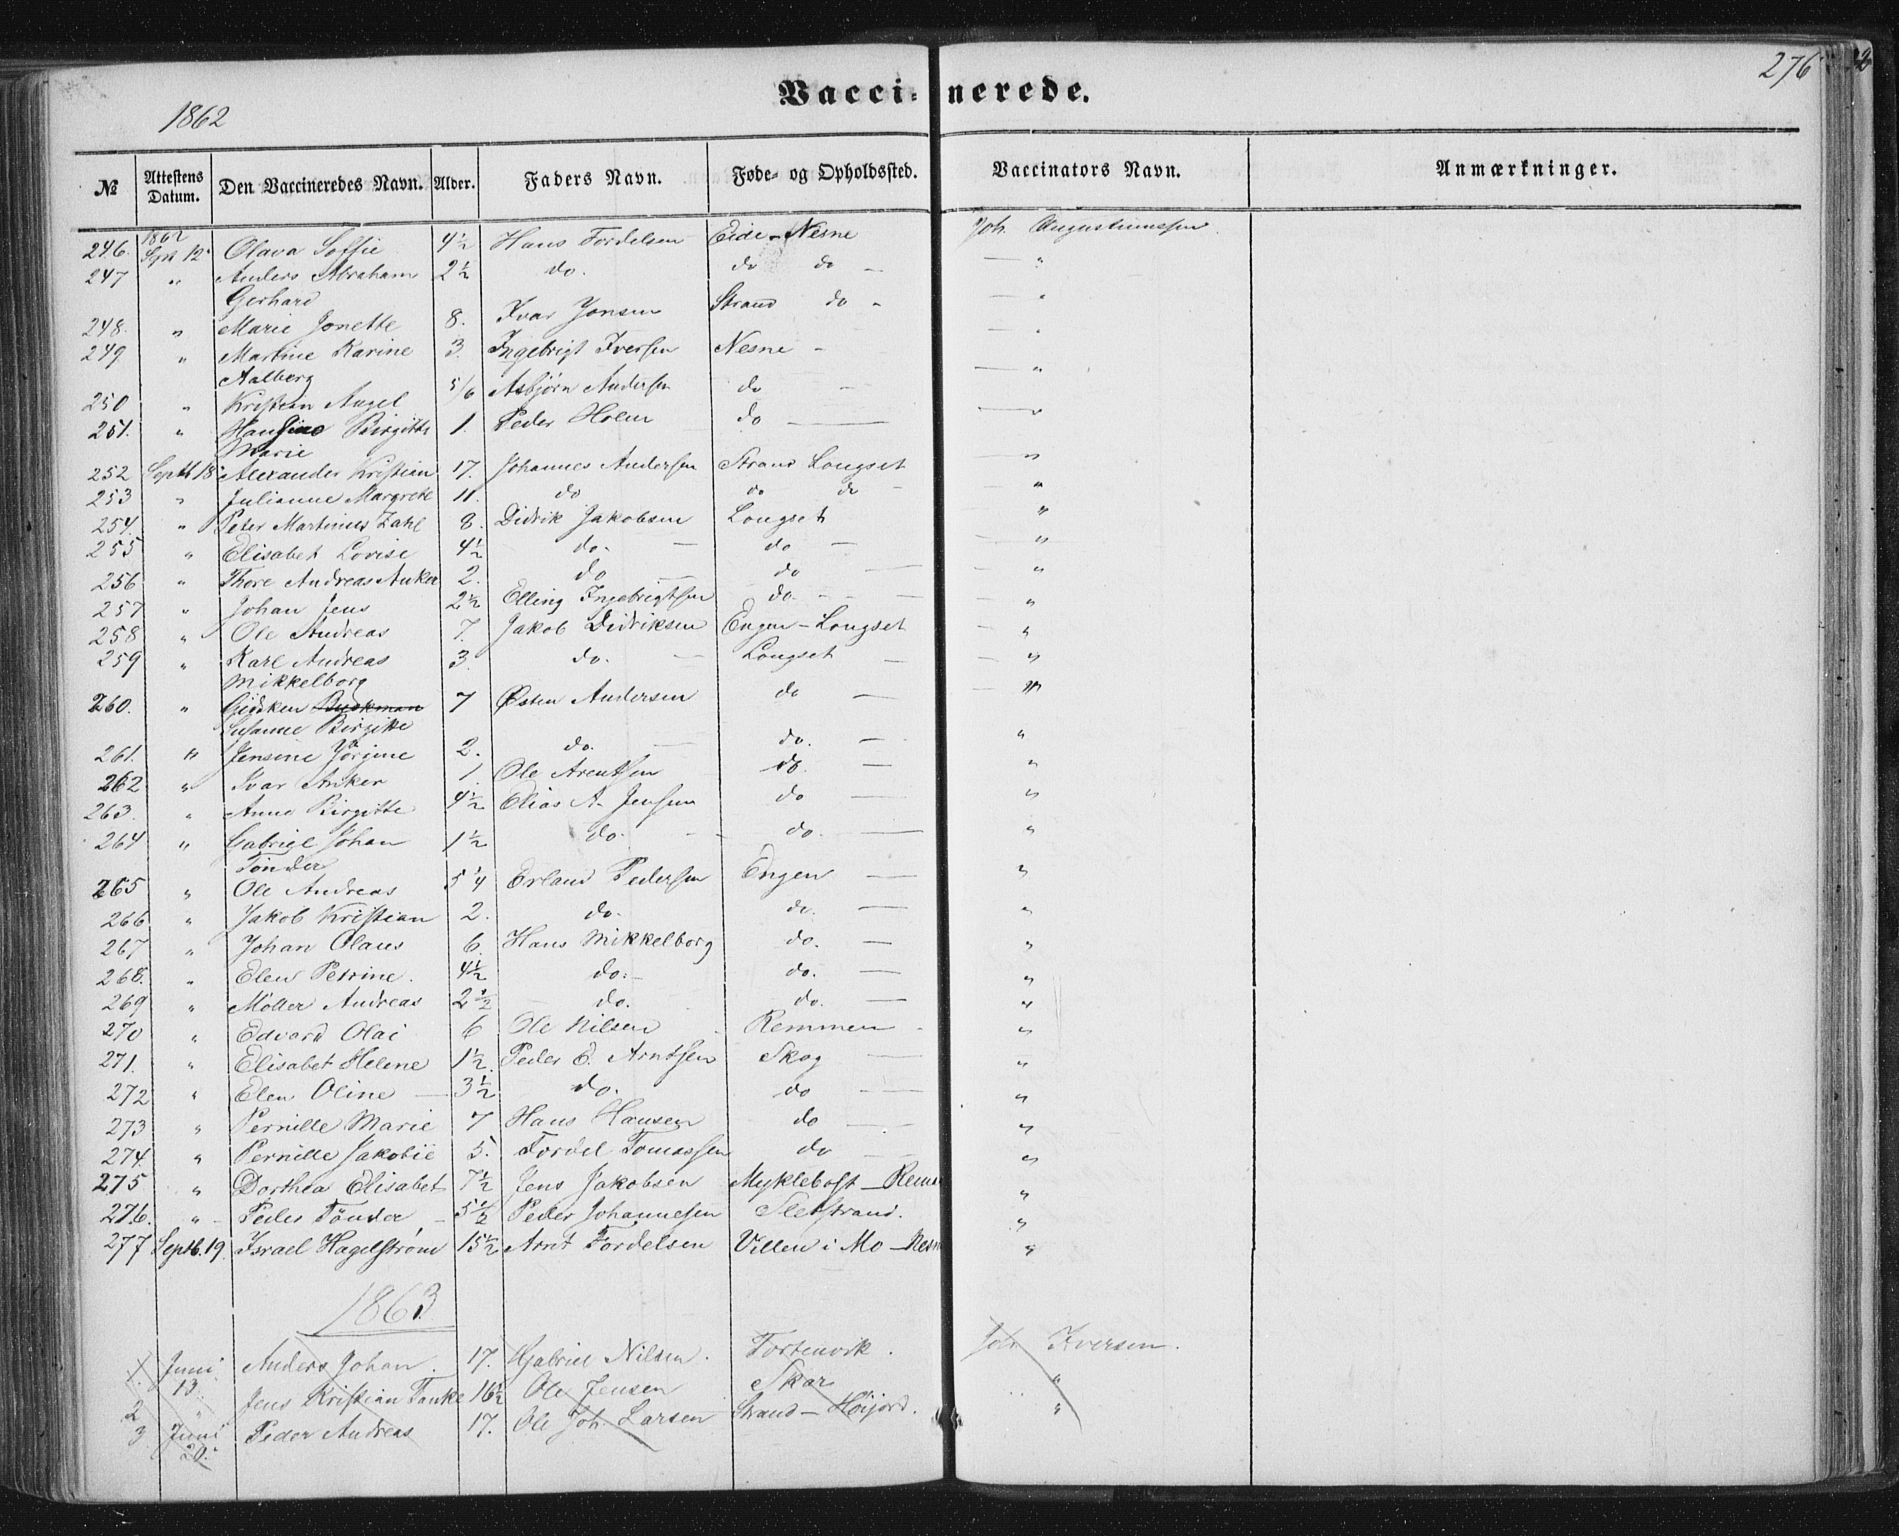 276
1862
Vaccinerede.
№ Attestens Datum. Den Vaccineredes Navn. Alder. Faders Navn. Føde- og Opholdssted. Vaccinators Navn. Anmærkninger.
246. 1862 Sept 12 Olava Soffie 4½ Hans Tordelsen Eide - Nesne Joh. Augustinussen
247 " Anders Abraham Gerhard 2½ do. do do - "
248. " Marie Jonette 8. Ivar Jonsen Strand do - "
249 " Martine Karine Aalberg 3. Ingebrigt Iversen Nesne - "
250 " Kristian Angel 5/6 Asbjørn Andersen do - "
251. " Hansine Birgitte Marie 1. Peder Holm do - "
252 Septb 18 Alexander Kristian 17. Johannes Andersen Strand Longset "
253 " Julianne Margrete 11. do do do - "
254. " Peter Martinus Zahl 8. Didrik Jakobsen Longset "
255 " Elisabet Lovise 4½ do. - do - "
256 " Thore Andreas Anker 2. do - do - "
257 " Johan Jens 2½ Elling Ingebrigtsen do. - "
258 " Ole Andreas 7. Jakob Didriksen Engen - Longset "
259 " Karl Andreas Mikkelborg 3. do. - Longset - "
260. " Gidsken Buskman Susanne Birgitte 7 Østen Andersen do - "
261. " Jensine Jørgine 2. do. - do. - "
262 " Ivar Anker 1. Ole Arentsen do. - "
263. " Anne Birgitte 4½ Elias A. Jensen do - "
264 " Gabriel Johan Tönder 1½ do. - do. - "
265 " Ole Andreas 5¼ Erland Pedersen Engen - "
266. " Jakob Kristian 2. do. do. - "
267 " Johan Olaus 6. Hans Mikkelborg do. - "
268. " Elen Petrine. 4½ do. - do. - "
269 " Möller Andreas 2½ - do. do. - "
270 " Edvard Olai 6 Ole Nilsen Remmen - "
271. " Elisabet Helene 1½ Peder E. Arntsen Skog - "
272 " Elen Oline - 3½ do. do - "
273 " Pernille Marie 7 Hans Hansen do - "
274. " Pernille Jakobie 5. Tordel Tomassen do - "
275 " Dorthea Elisabet 7½ Jens Jakobsen Myklebost - Rem "
276. " - Peder Tönder - 5½ Peder Johannesen Sletstrand. "
277 Septb. 19 Israel Hagelstrøm 15½ Arnt Tordelsen Villen i Mo - Nesn "
1863
1. Juni 13 Anders Johan. 17. Gabriel Nilsen. Tortenvik. Joh Iversen.
2 " Jens Kristian Tanke 16½ Ole Jensen Skar "
3 Juni 20. Peder Andreas 17. Ole Joh. Larsen Strand - Höijord. "